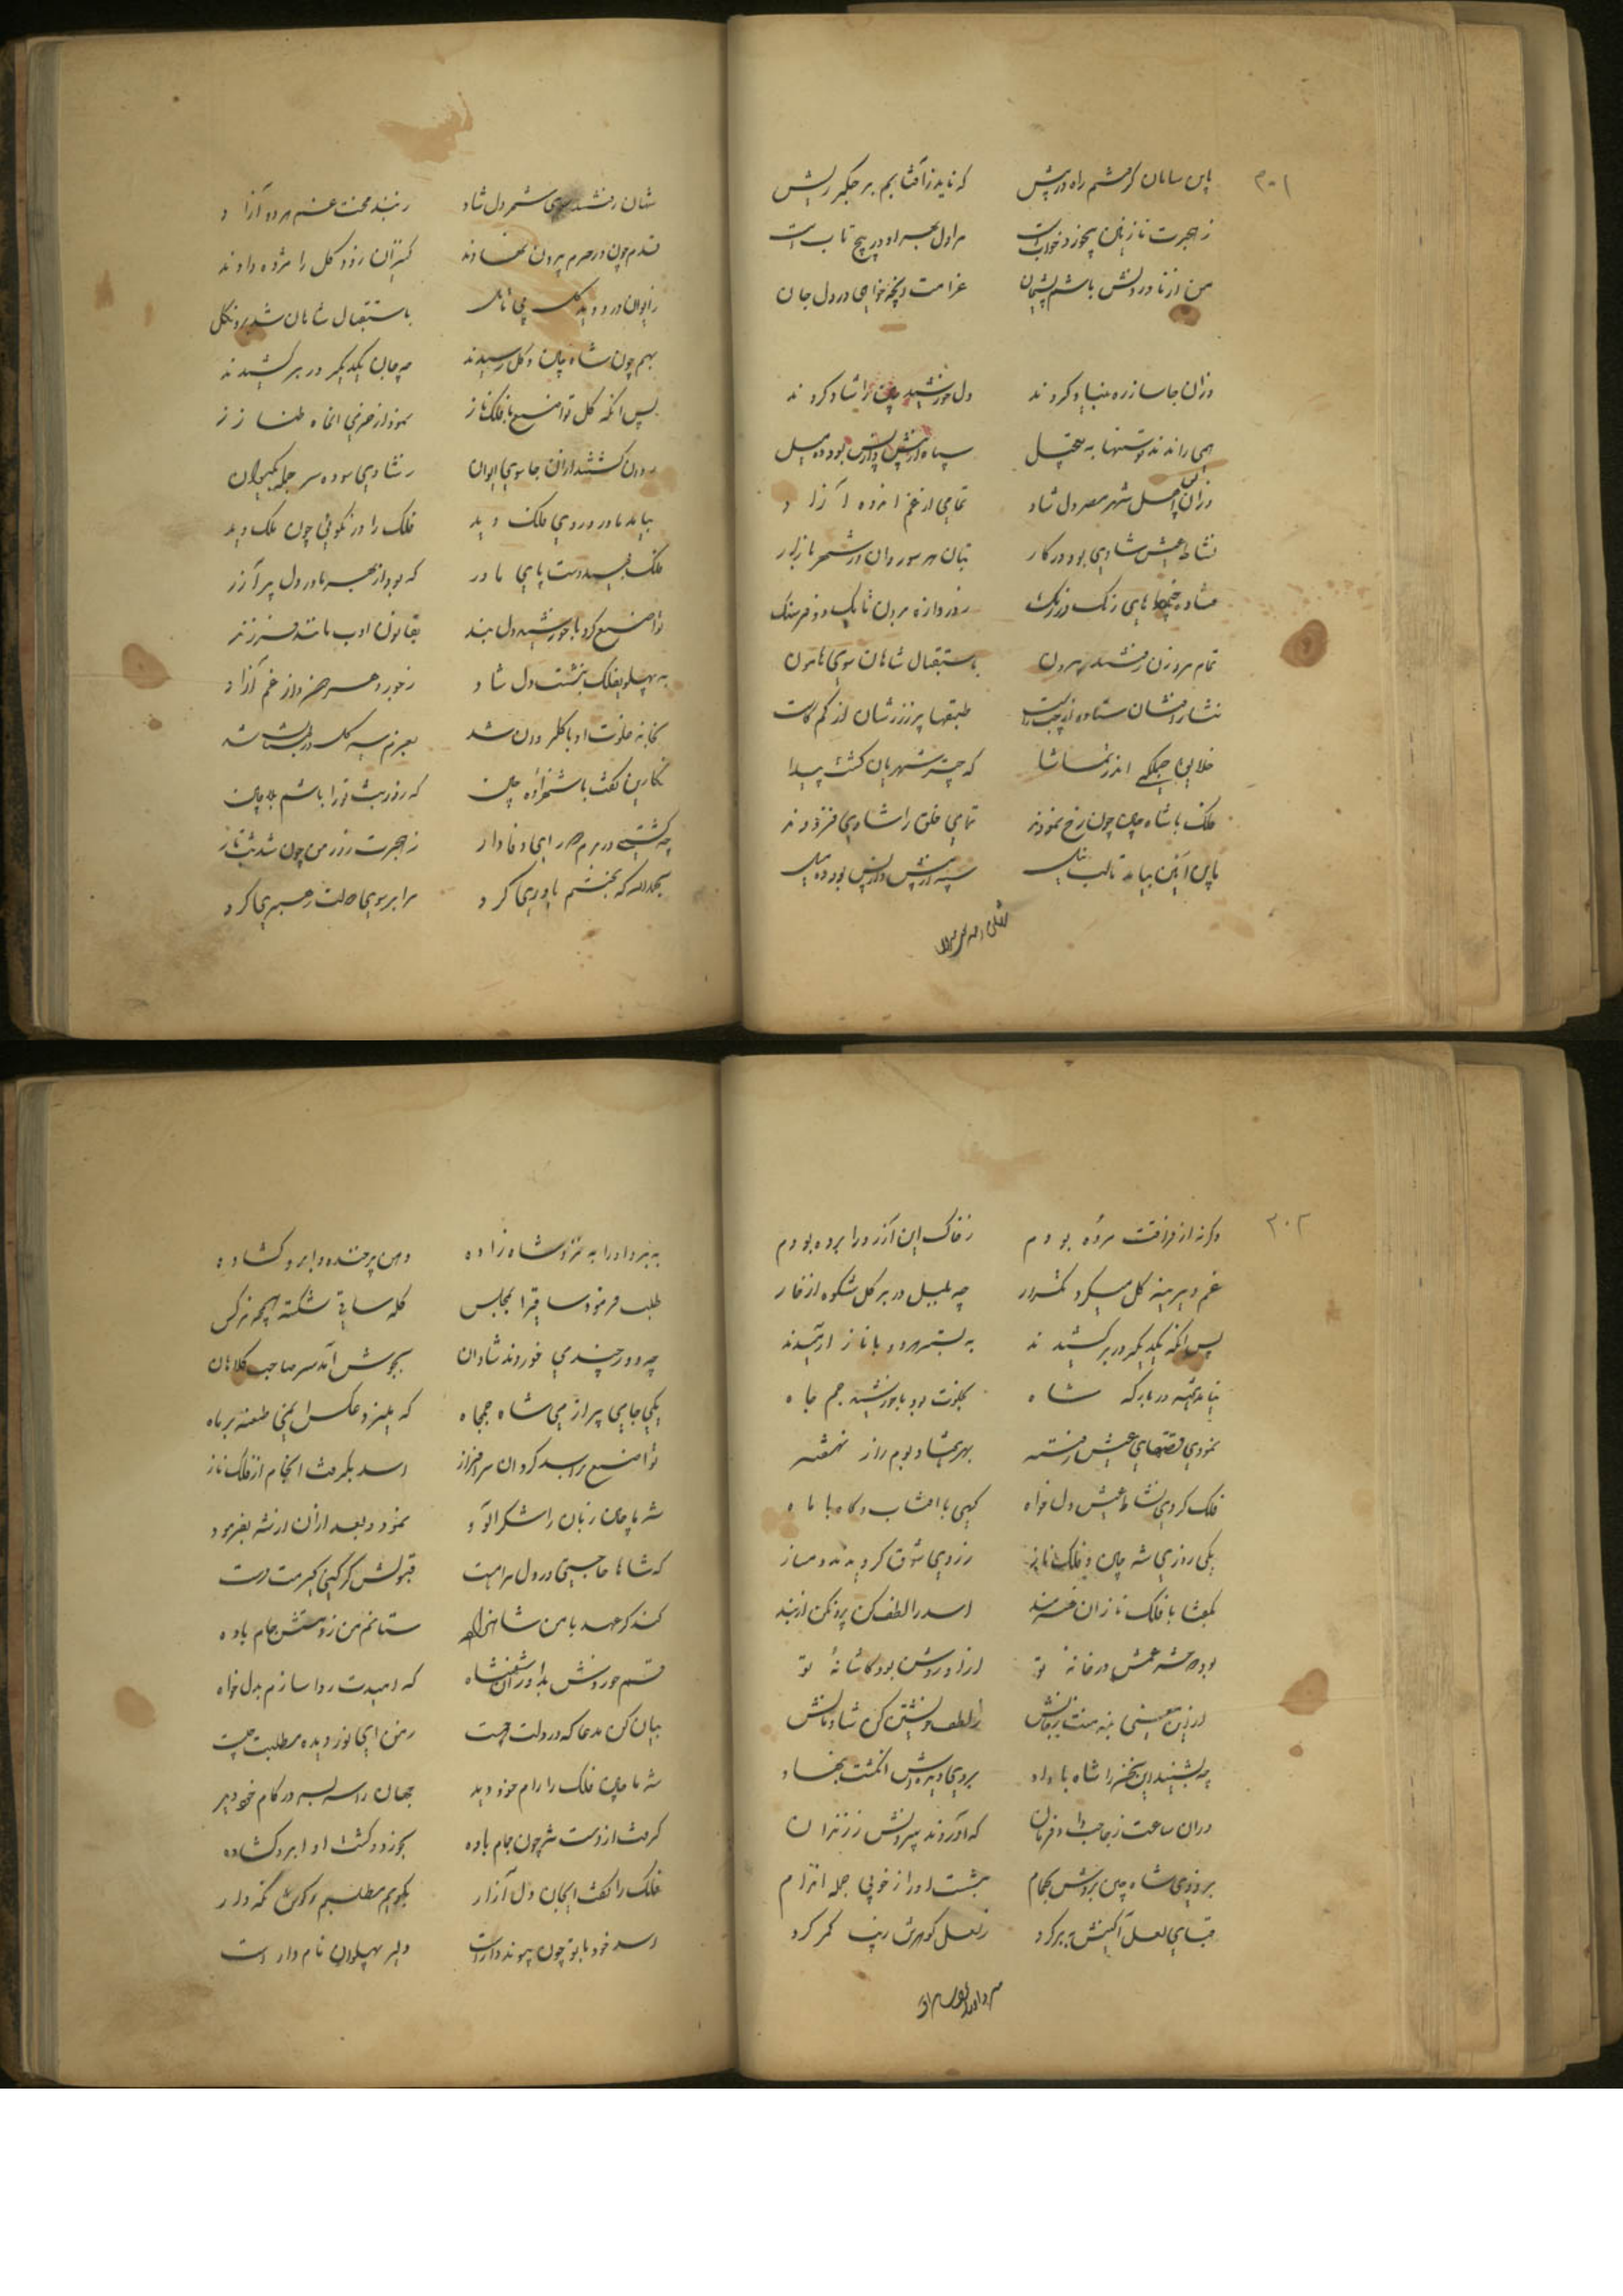 ۳۰۱
باین سامان گرفتم راه در پیش که ناید زآفتابم بر جگر ریش
ز هجرت نازنین بیخورد و خوابست مرا دل بهر او در پیچ تابست
من از نادردنش باشم پشیمان غرامت هرچه خواهی در دل جان
وزان جا ساز ره بنیاد کردند دل خورشید چین را شاد کردند
همی راندند توسنها به تعجیل سپاه از پیش و از پس بود ده میل
وزان پس اهل شهر مصر دل شاد تمامی از غم اندوه آزاد
نشاط عیش شادی بود در کار بتان هر سو روان در شهر بازار
ستاده خیمهای رنگ در رنگ ز دروازه برون تا یک دو فرسنگ
تمام مرد و زن رفتند بیرون باستقبال شاهان سوی هامون
نثار افشان ستاده از چپ و راست طبقها پر ز زرشان از کم کاست
خلایق جملگی اندر تماشا که چتر شهریان گشت پیدا
ملک با شاه چین چون رخ نمودند تمامی خلق را شادی فزودند
باین آئین بیامد تا لب نیل سپه از پیش و از پس بود ده میل
شهان رفتند سوی شهر دل شاد ز بند محنت غم هر دو آزاد
قدم چون در حرم بیرون نهادند کنیزان زود گل را مژده دادند
ز ایوان در دوید گل بی تامل باستقبال شاهان شد برون گل
بهم چون شاه چین و گل رسیدند چه جان یکدیگر در بر کشیدند
پس انگه گل تواضع با فلک ناز نمود از خرمی ان ماه طناز
درون گشتند از ان جا سوی ایوان ز شادی سوده سر جمله بکیوان
بیامد مادر و روی ملک دید فلک را در نکوئی چون ملک دید
ملک بوسید دست پای مادر که بود از بهر مادر دل پر آزر
تواضع کرد با خورشید دل بند بقانون ادب مانند فرزند
به پهلوی فلک بنشست دل شاد ز خورد و هر ضرر از غم آزاد
بخانه خلوت او با گل درون شد
نگارین گفت با شهزاده چین که روز و شب ترا باشم
چه گشتی در برم همرای و فادار ز هجرت روز من چون شد شب تار
بحمدالله که بختم یاوری کرد مرا بر سوی وصلت رهبری کرد
۳۰۲
وگرنه از فراقت مرده بودم ز خاک این آرزو را برده بودم
غم دیرینه گل میکرد تکرار چه بلبل در بر گل شکوه از خار
پس انگه یکدیگر در بر کشیدند به بستر هر دو با ناز ارمیدند
نیامد در بارگه شاه بخلوت بود با خورشید جم جاه
نمودی قصهای عیش رفته بهر شاد بوم راز نهفته
فلک کردی نشاط عیش دل خواه گهی با افتاب و گاه با ماه
یکی روزی شه چین و فلک ناز ز روی شوق گردیدند دمساز
بگفتا با فلک ناز ان خردمند اسد را لطف کن بیرون کن از بند
بود شمعش در خانه تو ازاو روشن بود کاشانه تو
ز لطف خویشتن کن شادمانش
چه بشنید این سخن را شاه با داد بروی دیده اش انگشت بنهاد
در ان ساعت ز حاجب داد فرمان که آوردند بیرونش ز زندان
بروزی شاه چین بردش بحمام بشست او را ز خوبی جمله اندام
قبای لعل آگینش ببر کرد ز لعل گوهرش زیب کمر کرد
به برد او را به نزد شاه زاده دهن پر خنده و ابرو گشاده
طلب فرمود ساقی را بمجلس کله ساقی شکسته همچه نرگس
چه دور چندمی خوردند شادان بجوش آمد سر صاحب کلاهان
یکی جامی پر از می شاه جمجاه که میزد عکس او یعنی طعنه بر ماه
تواضع با اسد کرد ان سرافراز اسد بگرفت ان جام از فلک ناز
شه ما چین زبان را شکر آلود نمود و بعد از ان از شه بفرمود
که شاها حاجتی در دل مراهست قبولش گر کنی گیرمت دست
کند گر عهد با من شاهزاده ستانم من ز دستش جام باده
قسم خوردش بدادار ان شهنشاه که امیدت روا سازم بدل خواه
بیان کن مدعا که در دلت چیست ز من ای نور دیده مطلبت چیست
شه ما چین فلک را رام خود دید جهان را سر بسر در کام خود دید
گرفت از دست شه چون جام باده بخورد و گشت او ابرو گشاده
فلک را گفت ایجان دل آزار بگویم مطلبم گوش نگه دار
اسد خود با تو چون پیوند دارست دلیر پهلوان نام دارست